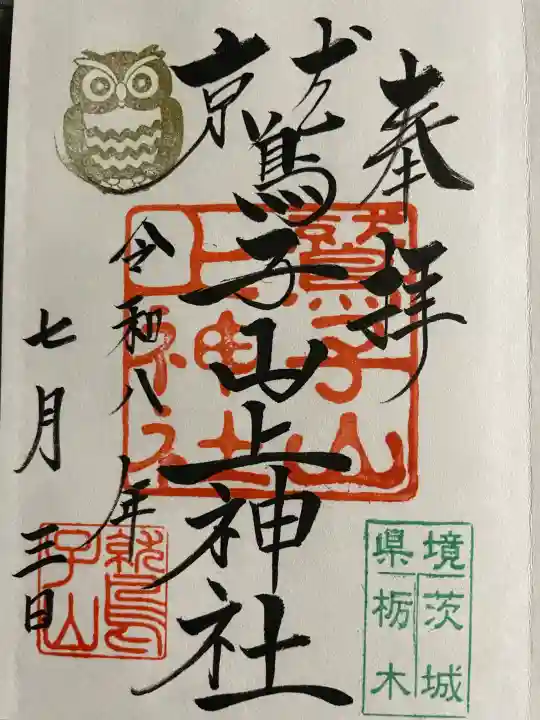 奉拝
鷲子山上神社
令和八年
七月三日
鷲子山
上神社
鷲子山
境茨城
県栃木